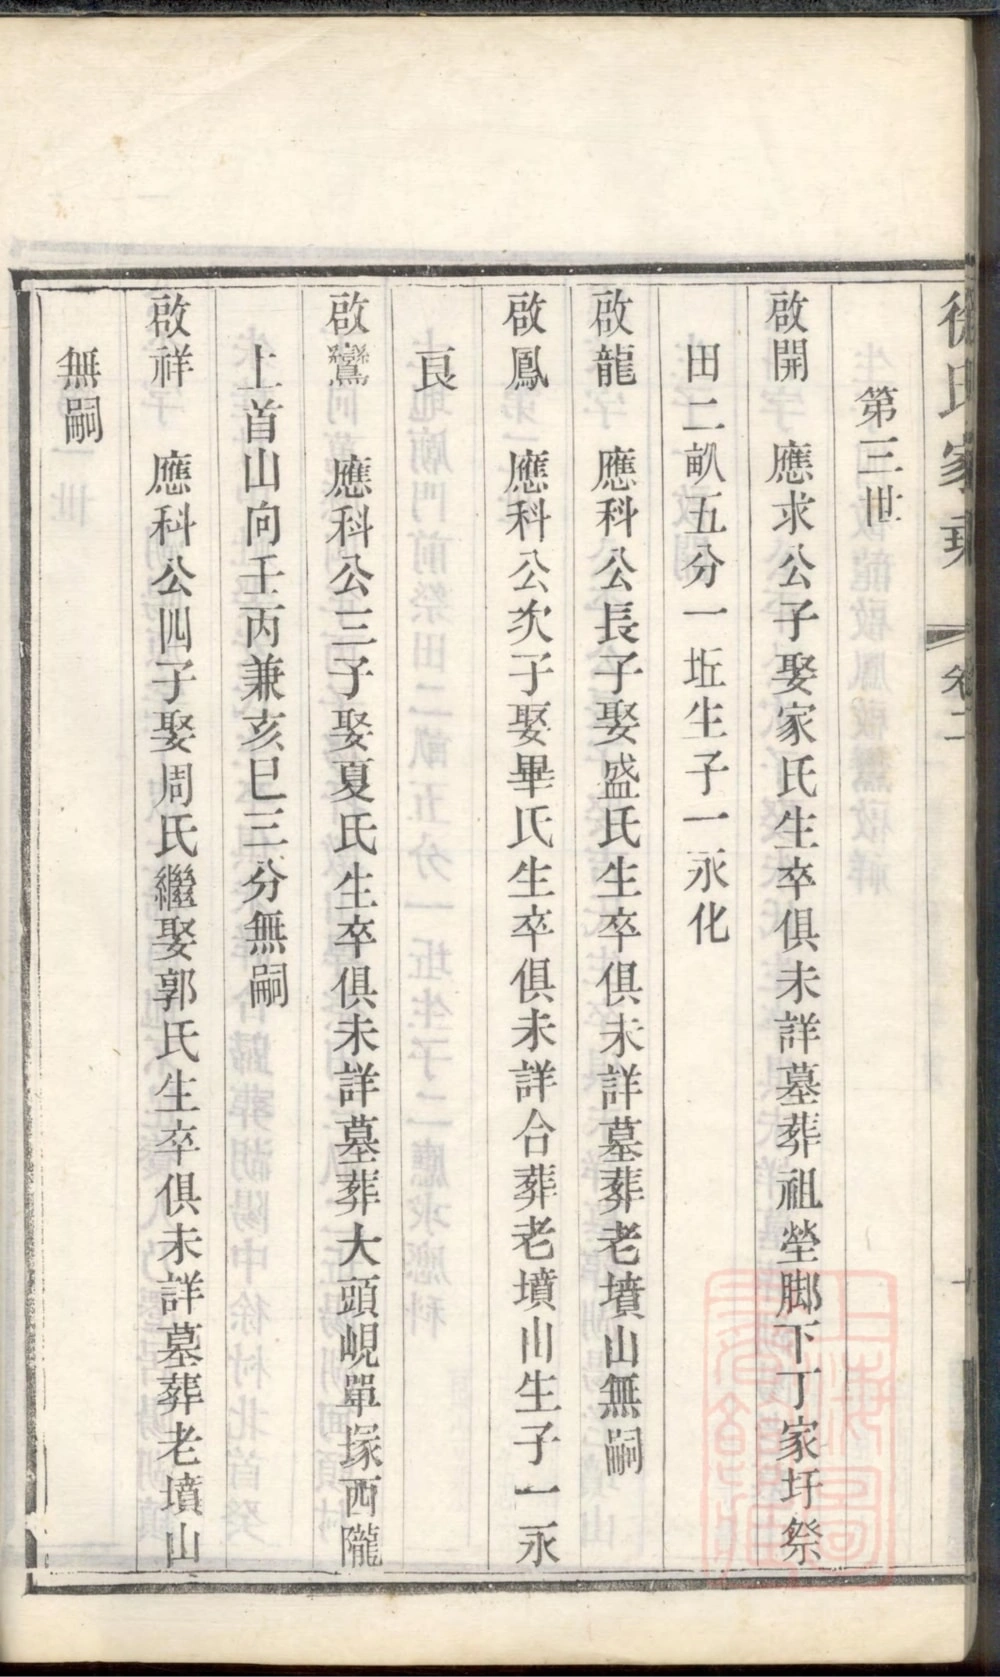 徐氏家乘 卷二
第三世
啟開 應求公子娶家氏生卒俱未詳墓葬祖塋脚下丁家圩祭
田二畝五分一坵生子一永化
啟龍 應科公長子娶盛氏生卒俱未詳墓葬老墳山無嗣
啟鳳 應科公次子娶畢氏生卒俱未詳合葬老墳山生子一永
良
啟鸞 應科公三子娶夏氏生卒俱未詳墓葬大頭峴單塚西隴
上首山向壬丙兼亥巳三分無嗣
啟祥 應科公四子娶周氏繼娶郭氏生卒俱未詳墓葬老墳山
無嗣